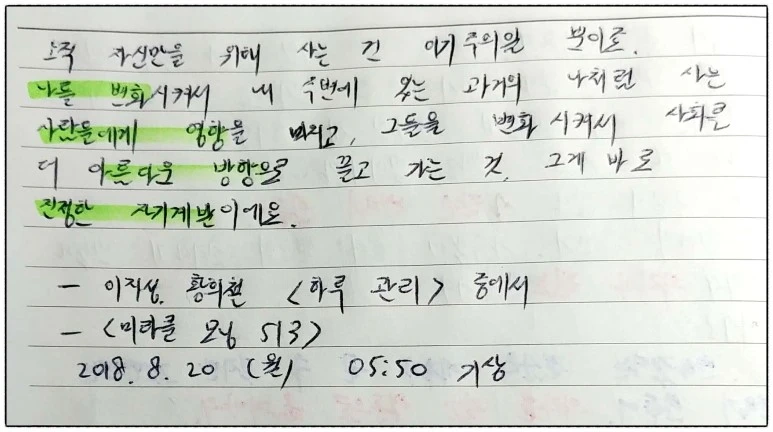 오직 자신만을 위해 사는 건 이기주의일 뿐이죠.
나를 변화시켜서 내 주변에 있는 과거의 나처럼 사는
사람들에게 영향을 미치고, 그들을 변화시켜서 사회를
더 아름다운 방향으로 끌고 가는 것, 그게 바로
진정한 자기계발이에요.
- 이지성, 황희철 <하루 관리> 중에서
- <미라클 모닝 513>
2018. 8. 20 (월) 05:50 기상